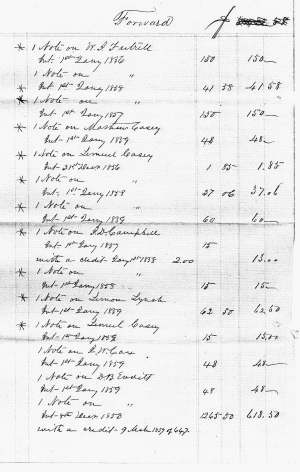 Forward
* 1 Note on W. A. Futrill
Int. 1st Jany 1856 150 150 —
1 Note on "
* Int 1st Jany 1859 41 58 41.58
* 1 Note on "
Int 1st Jany 1857 150 150 —
* 1 Note on Mathew Casey
Int 1st Jany 1859 48 48 —
* 1 Note on Lemuel Casey
Int 21st 1856 1 85 1.85
* 1 Note on "
Int. 1st Jany 1858 37 06 37.06
* 1 Note on "
Int 1st Jany 1859 60 60 —
* 1 Note on Campbell
Int 1st Jany 1857 15
with a credit Jany 1st 1858 2.00 13.00
* 1 Note on "
Int 1st Jany 1858 15 15 —
* 1 Note on Lynch
Int 1st Jany 1859 62 50 62.50
* 1 Note on Lemuel Casey
Int 1st Jany 1858 15 15.00
1 Note on Cox
Int 1st Jany 1859 48 48 —
1 Note on
Int 1st Jany 1859 48 48 —
1 Note on "
Int 1858 1265.50 618.50
with a credit 9 Mch 1859 of 647.